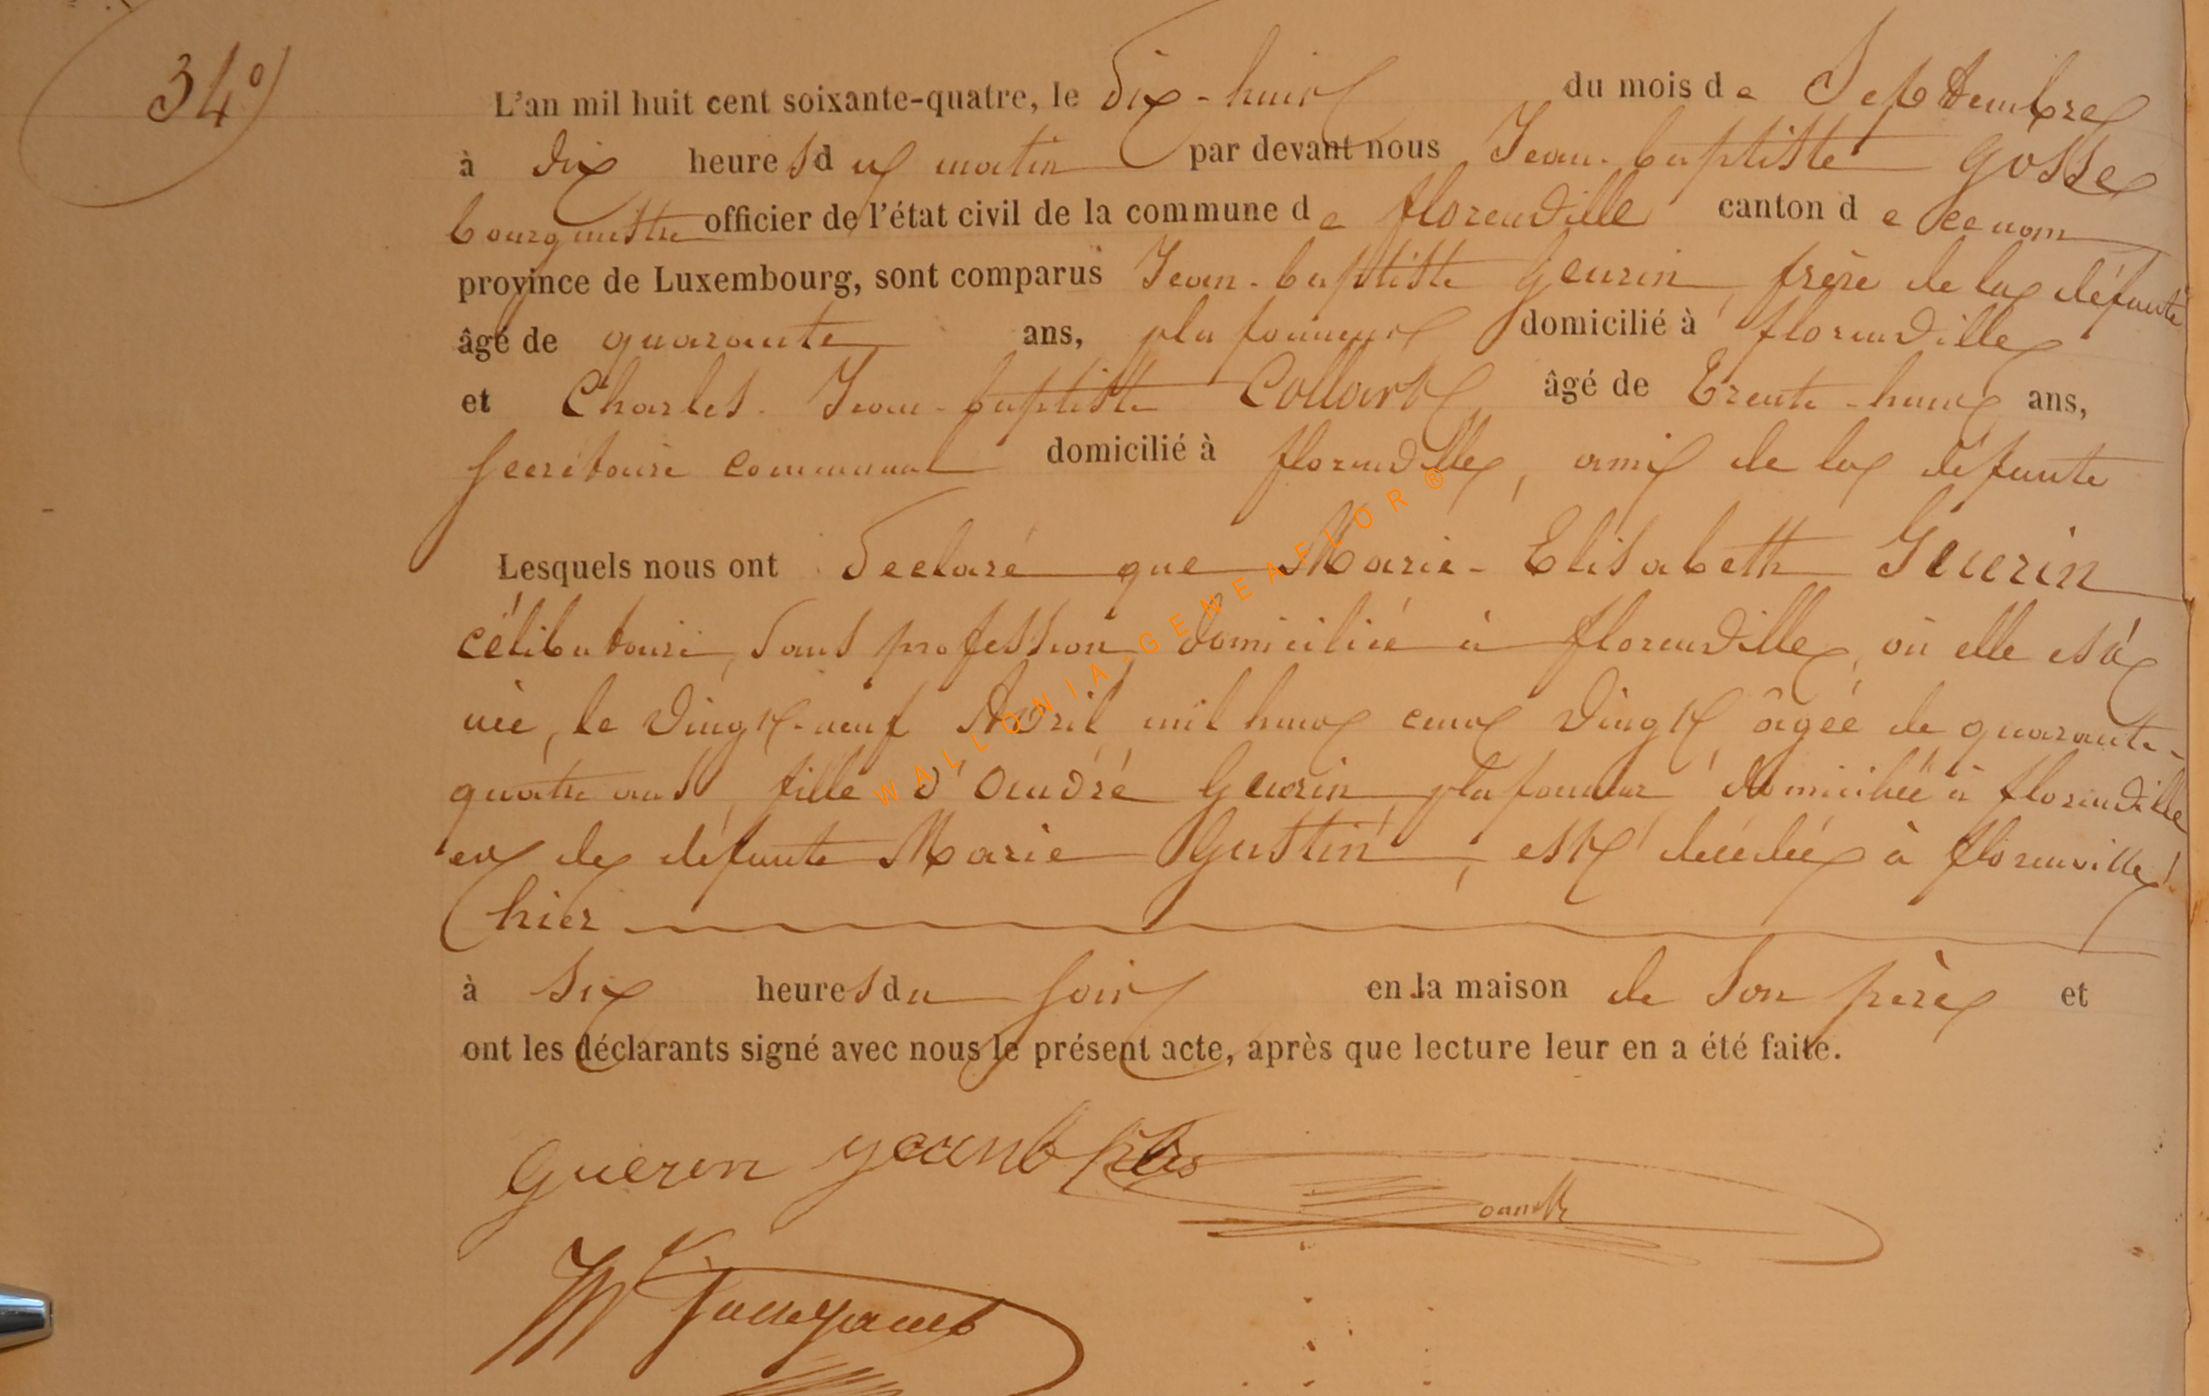 34°)
L'an mil huit cent soixante-quatre, le Dix-huit du mois de Septembre
à dix heures du matin par devant nous Jean-baptiste Gosse
bourgmestre officier de l'état civil de la commune de florenville canton de ce nom
province de Luxembourg, sont comparus Jean-baptiste Geurin, frère de la défunte
âgé de quarante ans, plafonneur domicilié à florenville
et Charles-Jean-baptiste Collart âgé de Trente-huit ans,
secrétaire communal domicilié à florenville, ami de la défunte
Lesquels nous ont Déclaré que Marie-Elisabeth Geuerin
célibataire, sans profession, domiciliée à florenville, où elle est
née, le vingt-neuf Avril mil huit cent vingt, âgée de quarante-
quatre ans, fille d'André Geurin, plafonneur domiciliée à florenville
et de défunte Marie Gustin, est décédée à florenville,
hier
à six heures du soir en la maison de son père et
ont les déclarants signé avec nous le présent acte, après que lecture leur en a été faite.
Gueren jeanb
WALLONIA-GENEAFLOR®